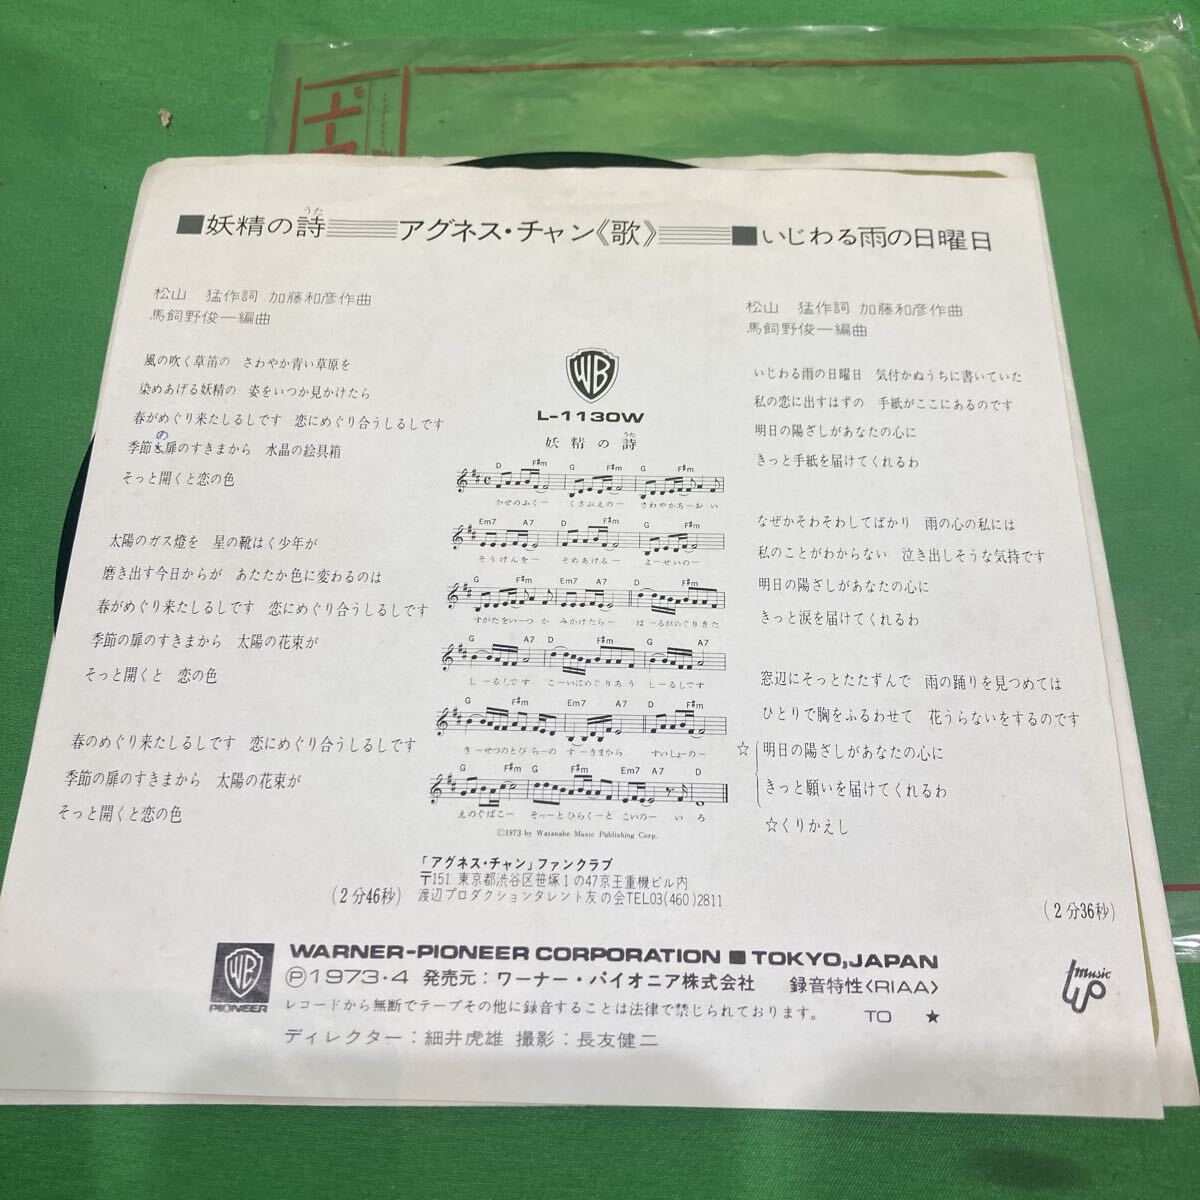 ■妖精の詩 アグネス・チャン《歌》 ■いじわる雨の日曜日
うた
松山 猛作詞 加藤和彦作曲
馬飼野俊一編曲
風の吹く草笛の さわやか青い草原を
染めあげる妖精の 姿をいつか見かけたら
春がめぐり来たしるしです 恋にめぐり合うしるしです
季節の扉のすきまから 水晶の絵具箱
そっと開くと恋の色
太陽のガス燈を 星の靴はく少年が
磨き出す今日からが あたたか色に変わるのは
春がめぐり来たしるしです 恋にめぐり合うしるしです
季節の扉のすきまから 太陽の花束が
そっと開くと 恋の色
春のめぐり来たしるしです 恋にめぐり合うしるしです
季節の扉のすきまから 太陽の花束が
そっと開くと恋の色
(2分46秒)
WB
L-1130W
妖精の詩
うた
D F#m G F#m G F#m
かぜのふくー くさぶえのー さわやかあーおい
Em7 A7 D F#m G F#m
そうげんをー そめあげるー よーせいのー
G F#m Em7 A7 D F#m
すがたをいーつか みかけたらー はーるがめぐりきた
G A7 D F#m G A7
しーるしです こーいにめぐりあう しーるしです
G F#m Em7 A7 D F#m
きーせつのとびらーの すーきまから すいしょーのー
G F#m G F#m Em7 A7 D
えのぐばこー そっーとひらくーと こいのー いろ
©1973 by Watanabe Music Publishing Corp.
「アグネス・チャン」ファンクラブ
〒151 東京都渋谷区笹塚1の47京王重機ビル内
渡辺プロダクションタレント友の会TEL03(460)2811
松山 猛作詞 加藤和彦作曲
馬飼野俊一編曲
いじわる雨の日曜日 気付かぬうちに書いていた
私の恋に出すはずの 手紙がここにあるのです
明日の陽ざしがあなたの心に
きっと手紙を届けてくれるわ
なぜかそわそわしてばかり 雨の心の私には
私のことがわからない 泣き出しそうな気持です
明日の陽ざしがあなたの心に
きっと涙を届けてくれるわ
窓辺にそっとたたずんで 雨の踊りを見つめては
ひとりで胸をふるわせて 花うらないをするのです
☆明日の陽ざしがあなたの心に
きっと願いを届けてくれるわ
☆くりかえし
(2分36秒)
WB
PIONEER
WARNER-PIONEER CORPORATION ■ TOKYO,JAPAN
Ⓟ1973・4 発売元：ワーナー・パイオニア株式会社 録音特性〈RIAA〉
レコードから無断でテープその他に録音することは法律で禁じられております。 TO ★
ディレクター：細井虎雄 撮影：長友健二
music
up